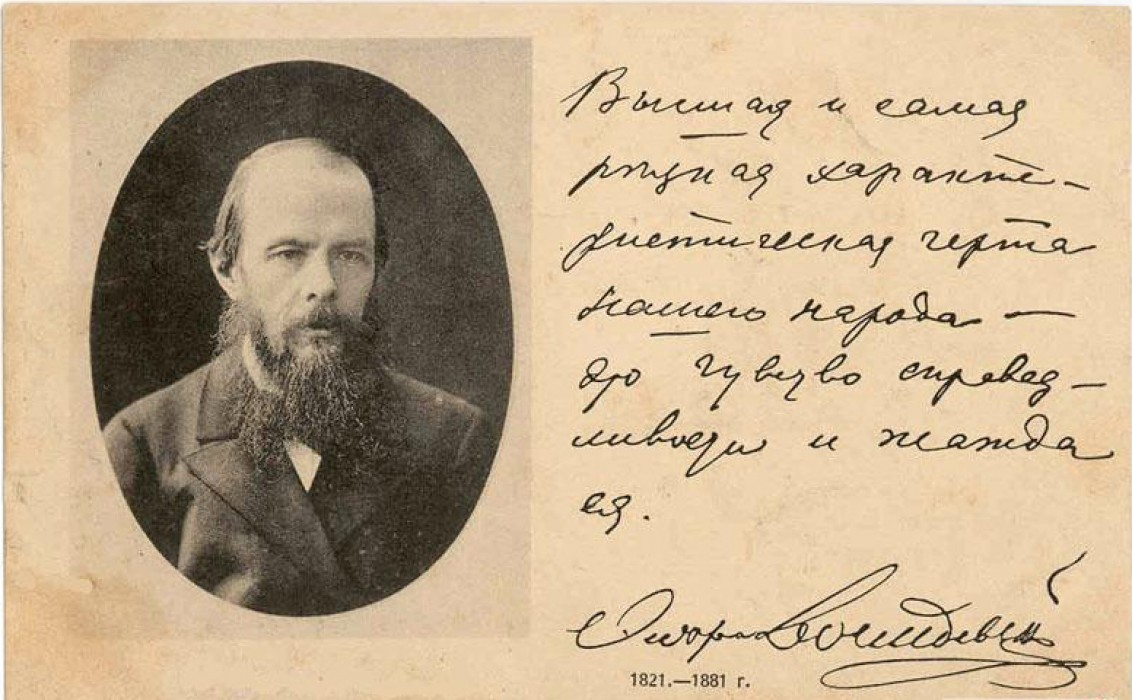 Высшая и самая
резкая характе-
ристическая черта
нашего народа —
это чувство справед-
ливости и жажда
ея.
Ѳедоръ Достоевскiй
1821.—1881 г.